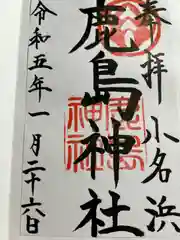 奉拝
小名浜
鹿島神社
令和五年一月二十六日
鹿島
神社